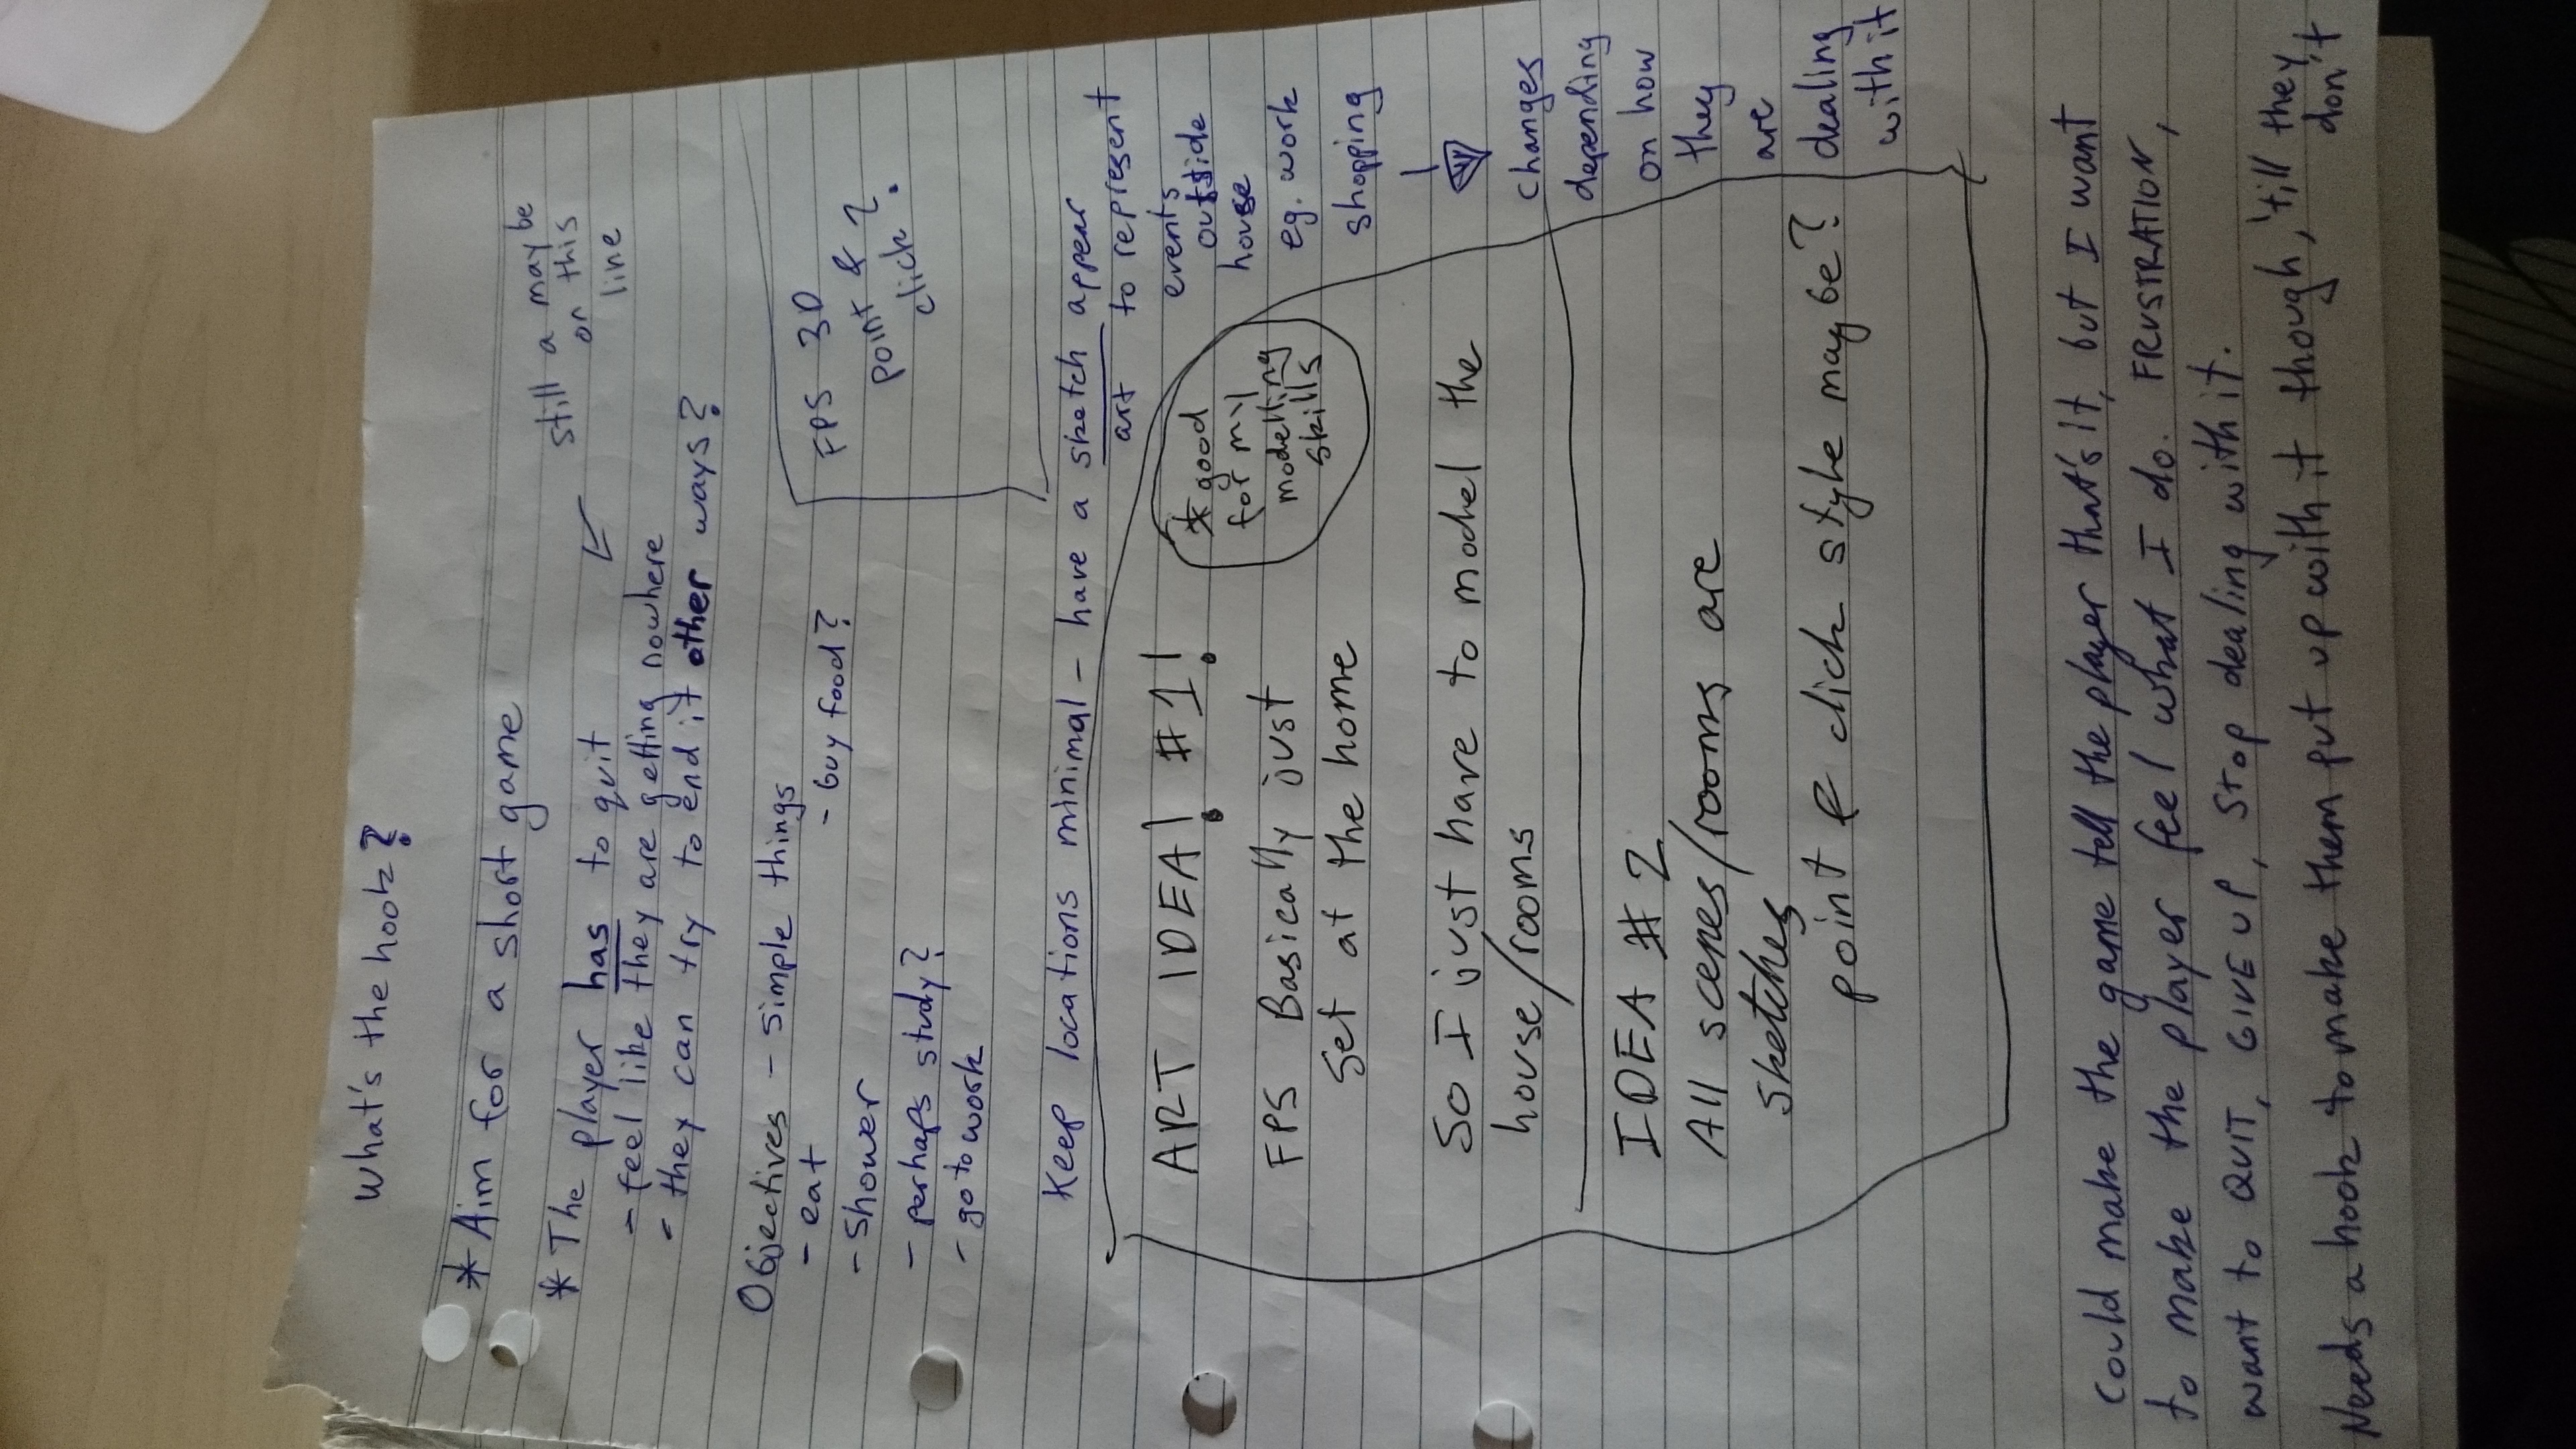 What's the hook?
* Aim for a short game
still a maybe
on this
line
* The player has to quit
- feel like they are getting nowhere
- they can try to end it other ways?
Objectives - simple things
- eat
- buy food?
- shower
- perhaps study?
- go to work
FPS 3D
point &
click?
Keep locations minimal - have a sketch appear
art to represent
events
outside
house
eg. work
shopping
changes
depending
on how
they
are
dealing
with it
ART IDEA! #1!
* good
for my
modelling
skills
FPS Basically just
set at the home
So I just have to model the
house/rooms
IDEA #2
All scenes/rooms are
sketches
point & click style maybe?
Could make the game tell the player that's it, but I want
to make the player feel what I do. FRUSTRATION,
want to QUIT, GIVE UP, stop dealing with it.
Needs a hook to make them put up with it though, 'till they
don't